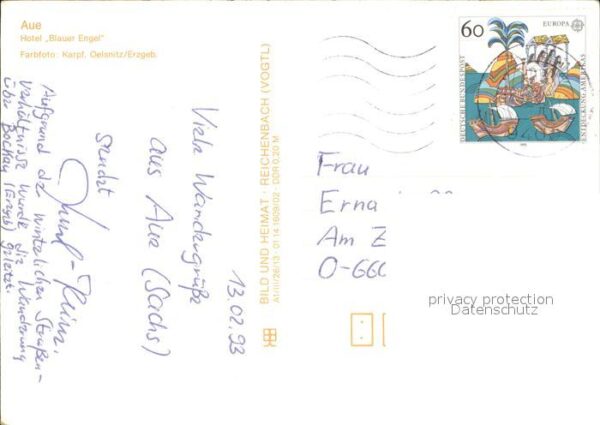 Aue
Hotel „Blauer Engel"
Farbfoto: Karpf, Oelsnitz/Erzgeb.
BILD UND HEIMAT · REICHENBACH (VOGTL)
A1/III/26/13 · 01 14 1609/02 · DDR 0,20 M
13.02.93
Viele Wandergrüße
aus Aue (Sachs)
sendet
Aufgrund der winterlichen Straßen-
verhältnisse wurde die Wanderung
über Bockau (Erzgeb)
60
EUROPA
DEUTSCHE BUNDESPOST
ENTDECKUNG AMERIKAS
Frau
Erna
Am Z
O-660
privacy protection
Datenschutz